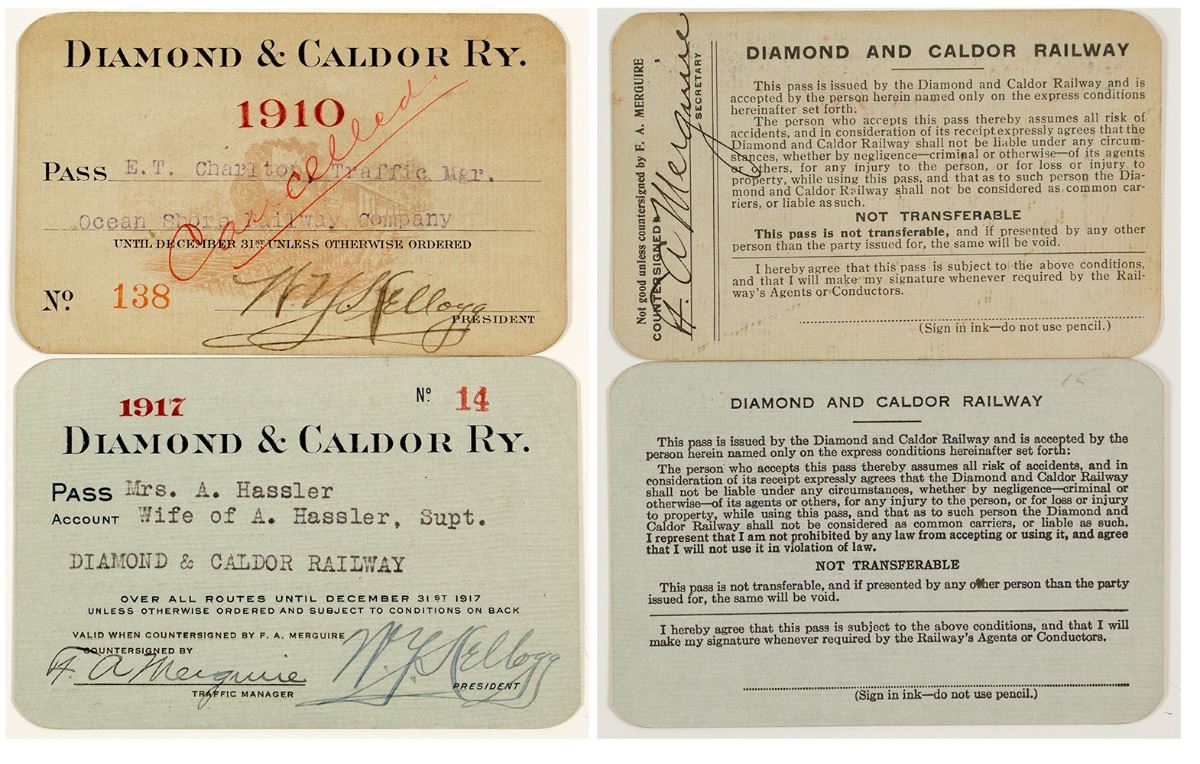 DIAMOND & CALDOR RY.
1910
PASS E.T. Charlton, Traffic Mgr.
Ocean Shore Railway Company
UNTIL DECEMBER 31ST UNLESS OTHERWISE ORDERED
Cancelled
No. 138
W.Y. Kellogg
PRESIDENT
1917
No. 14
DIAMOND & CALDOR RY.
PASS Mrs. A. Hassler
ACCOUNT Wife of A. Hassler, Supt.
DIAMOND & CALDOR RAILWAY
OVER ALL ROUTES UNTIL DECEMBER 31ST 1917
UNLESS OTHERWISE ORDERED AND SUBJECT TO CONDITIONS ON BACK
VALID WHEN COUNTERSIGNED BY F. A. MERGUIRE
COUNTERSIGNED BY
F. A. Merguire
TRAFFIC MANAGER
W.Y. Kellogg
PRESIDENT
Not good unless countersigned by F. A. MERGUIRE
COUNTERSIGNED
F. A. Merguire
SECRETARY
DIAMOND AND CALDOR RAILWAY
This pass is issued by the Diamond and Caldor Railway and is
accepted by the person herein named only on the express conditions
hereinafter set forth:
The person who accepts this pass thereby assumes all risk of
accidents, and in consideration of its receipt expressly agrees that the
Diamond and Caldor Railway shall not be liable under any circum-
stances, whether by negligence—criminal or otherwise—of its agents
or others, for any injury to the person, or for loss or injury to
property, while using this pass, and that as to such person the Dia-
mond and Caldor Railway shall not be considered as common car-
riers, or liable as such.
NOT TRANSFERABLE
This pass is not transferable, and if presented by any other
person than the party issued for, the same will be void.
I hereby agree that this pass is subject to the above conditions,
and that I will make my signature whenever required by the Rail-
way's Agents or Conductors.
(Sign in ink—do not use pencil.)
DIAMOND AND CALDOR RAILWAY
This pass is issued by the Diamond and Caldor Railway and is accepted by the
person herein named only on the express conditions hereinafter set forth:
The person who accepts this pass thereby assumes all risk of accidents, and in
consideration of its receipt expressly agrees that the Diamond and Caldor Railway
shall not be liable under any circumstances, whether by negligence—criminal or
otherwise—of its agents or others, for any injury to the person, or for loss or injury
to property, while using this pass, and that as to such person the Diamond and
Caldor Railway shall not be considered as common carriers, or liable as such.
I represent that I am not prohibited by any law from accepting or using it, and agree
that I will not use it in violation of law.
NOT TRANSFERABLE
This pass is not transferable, and if presented by any other person than the party
issued for, the same will be void.
I hereby agree that this pass is subject to the above conditions, and that I will
make my signature whenever required by the Railway's Agents or Conductors.
(Sign in ink—do not use pencil.)